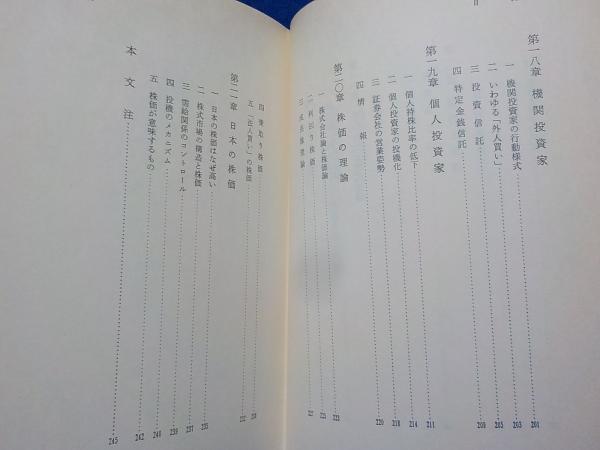 第一八章 機関投資家 201
一 機関投資家の行動様式 203
二 いわゆる「外人買い」 205
三 投資信託 208
四 特定金銭信託 209
第一九章 個人投資家 211
一 個人持株比率の低下 214
二 個人投資家の投機化 218
三 証券会社の営業姿勢
四 情報 220
第二〇章 株価の理論 223
一 株式会社論と株価論 225
二 利回り株価 227
三 成長株理論
四 乗取り株価
五 「法人買い」の株価 232
第二一章 日本の株価 235
一 日本の株価はなぜ高い 237
二 株式市場の構造と株価 239
三 需給関係のコントロール 240
四 投機のメカニズム 242
五 株価が意味するもの
本文注 245